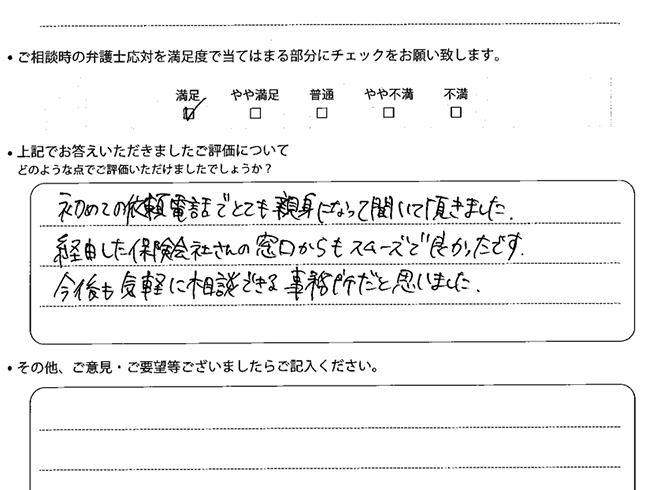 • ご相談時の弁護士応対を満足度で当てはまる部分にチェックをお願い致します。
満足 やや満足 普通 やや不満 不満
• 上記でお答えいただきましたご評価について
どのような点でご評価いただけましたでしょうか?
初めての依頼電話でとても親身になって聞いて頂きました.
経由した保険会社さんの窓口からもスムーズで良かったです.
今後も気軽に相談できる事務所だと思いました.
• その他、ご意見・ご要望等ございましたらご記入ください。